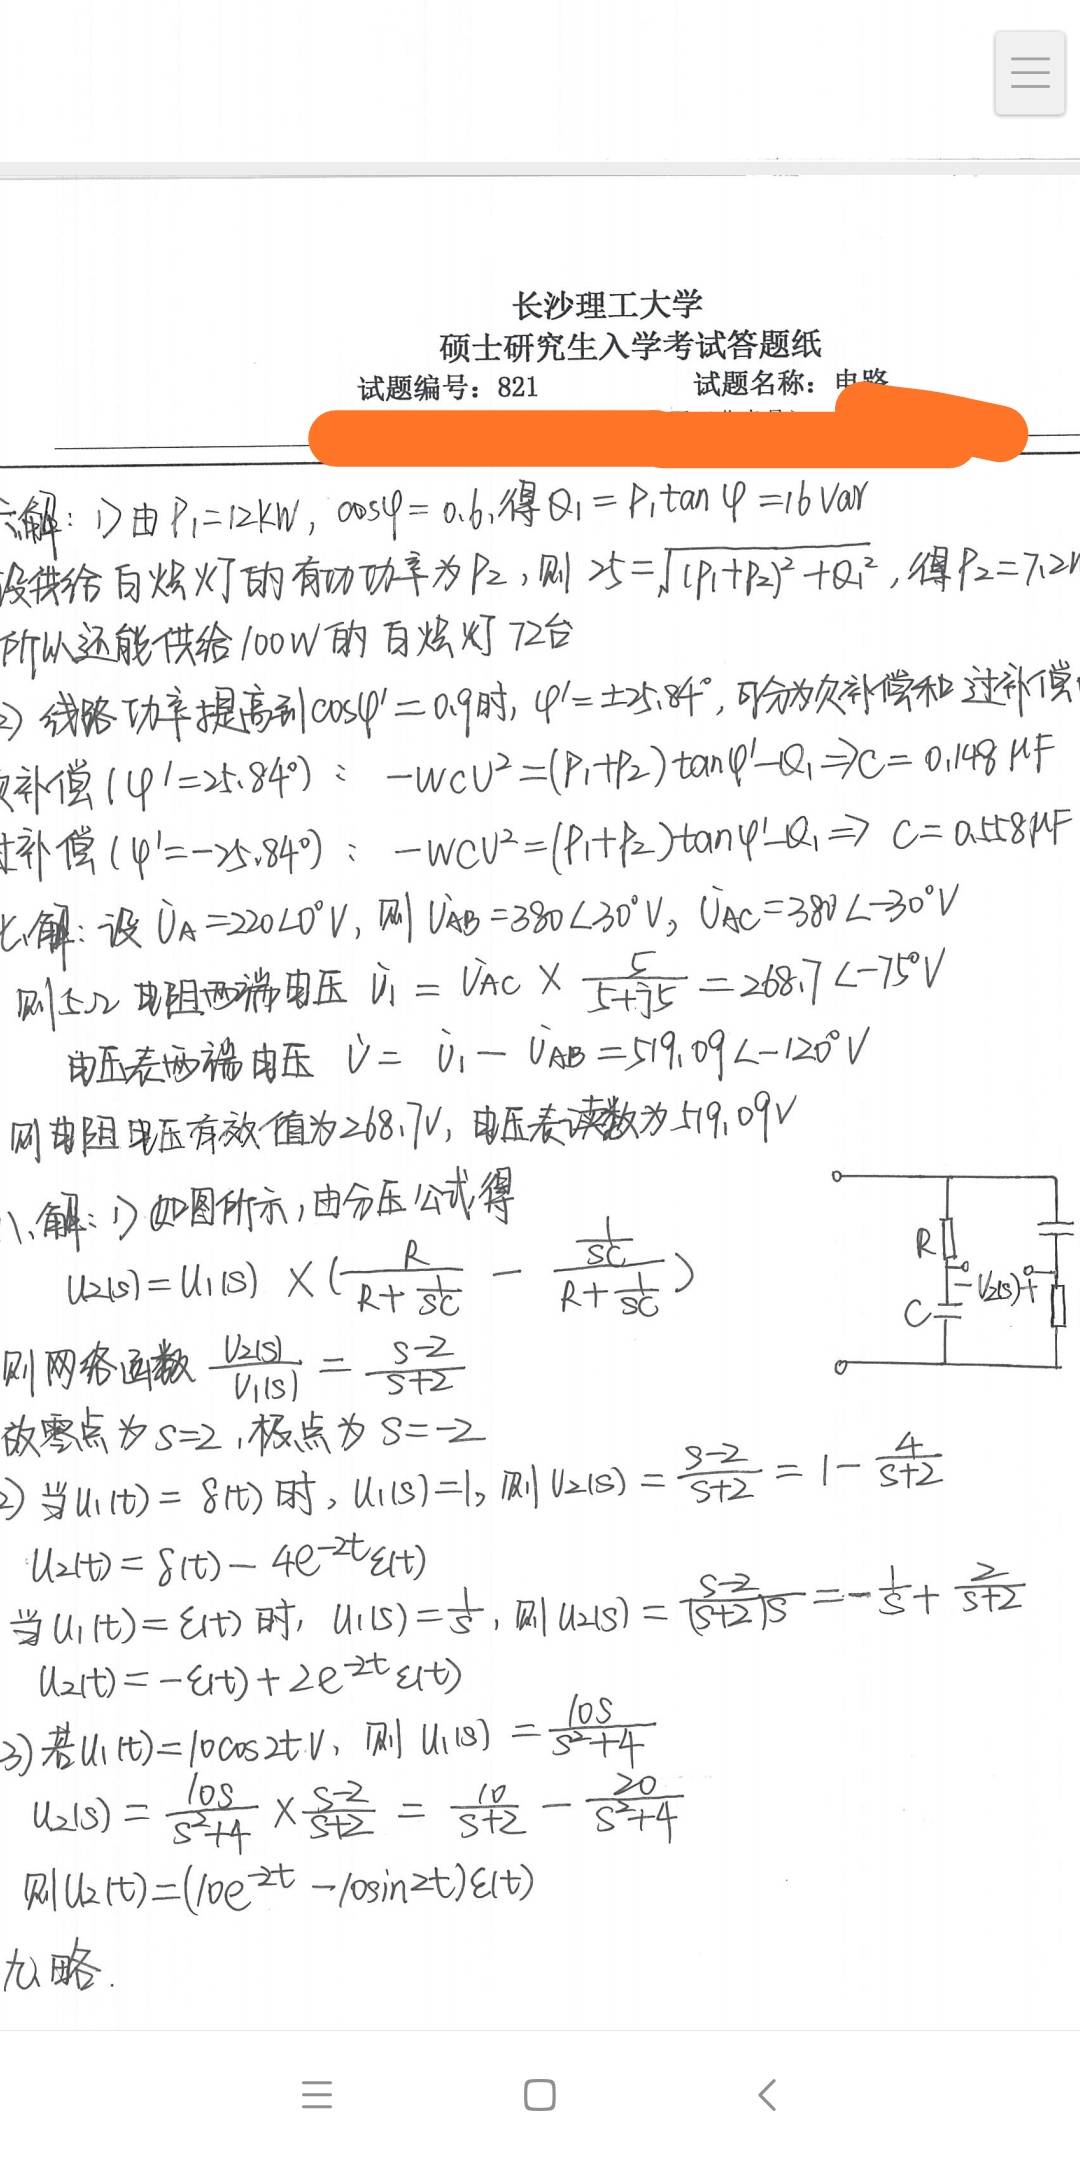 长沙理工大学
硕士研究生入学考试答题纸
试题编号：821 试题名称：电路
解：1) 由 P₁=12KW, cosφ=0.6, 得 Q₁=P₁tanφ=16Var
设供给白炫灯的有功功率为P₂, 则 25=√((P₁+P₂)²+Q₁²), 得P₂=7.2
所以还能供给100W的白炫灯72台
2) 线路功率提高到cosφ'=0.9时, φ'=±25.84°, 可分为欠补偿和过补偿
欠补偿(φ'=25.84°): -WCU²=(P₁+P₂)tanφ'-Q₁⇒C=0.148μF
过补偿(φ'=-25.84°): -WCU²=(P₁+P₂)tanφ'-Q₁⇒C=0.558μF
七、解: 设 U̇A=220∠0°V, 则 U̇AB=380∠30°V, U̇AC=380∠-30°V
则5Ω电阻两端电压 U̇₁ = U̇AC × 5/(5+j5) = 268.7∠-75°V
电压表两端电压 U̇ = U̇₁ - U̇AB = 519.09∠-120°V
则电阻电压有效值为268.7V, 电压表读数为519.09V
八、解: 1) 如图所示, 由分压公式得
U₂(s)=U₁(s)×(R/(R+1/SC) - (1/SC)/(R+1/SC))
R
-U₂(s)+
C
则网络函数 U₂(s)/U₁(s) = (s-2)/(s+2)
故零点为 s=2, 极点为 s=-2
2) 当U₁(t)=δ(t)时, U₁(s)=1, 则U₂(s)=(s-2)/(s+2)=1-4/(s+2)
U₂(t)=δ(t)-4e^(-2t)ε(t)
当U₁(t)=ε(t)时, U₁(s)=1/s, 则U₂(s)=(s-2)/((s+2)s)=-1/s+2/(s+2)
U₂(t)=-ε(t)+2e^(-2t)ε(t)
3) 若U₁(t)=10cos2t V, 则 U₁(s)=10s/(s²+4)
U₂(s)=10s/(s²+4)×(s-2)/(s+2)=10/(s+2)-20/(s²+4)
则U₂(t)=(10e^(-2t)-10sin2t)ε(t)
九、略.